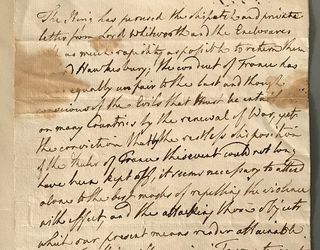 The King has perused the dispatch and private
letter from Lord Whitworth and the Enclosures
as much rapidity as possible to return them
Lord Hawkesbury; the conduct of France has
equally unfair to the last and though
conscious of the Evils that must be enta
on many Countries by the renewal of War, yet
the conviction that the restless disposition
of the ruler of France
have been kept off, it seems necessary to attend
alone to the best modes of repelling the violence
with effect and the attacking those objects
which our present means render attainable